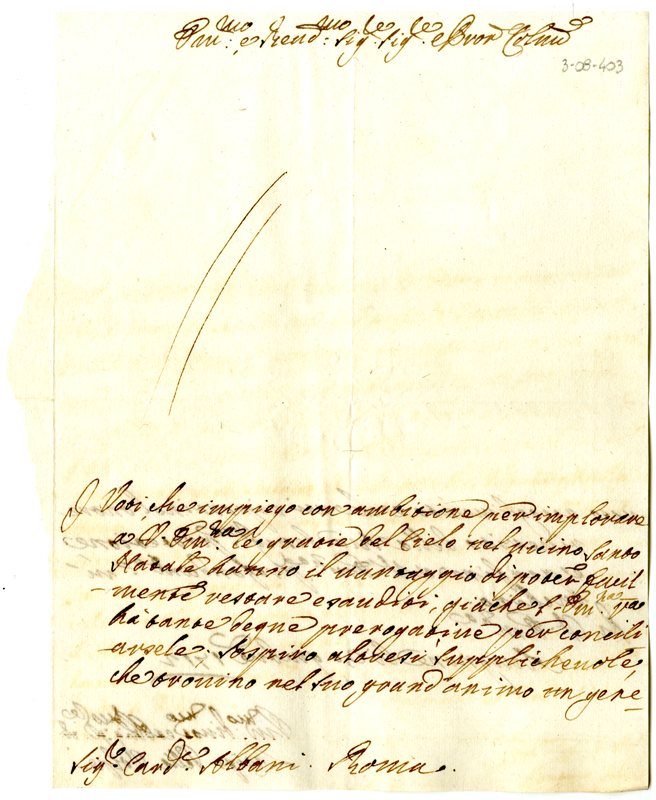 Em.mo e Reud.mo Sig.re Sig.re e Pron Colmo
3-08-403
I Voti che impiego con ambitione per implorare
a V. Em.za le gratie del Cielo nel vicino Santo
Natale hanno il vantaggio di poter facil
mente restare esauditi, giache l'Em.za Vra
hà tante degne prerogative per concili
arsele. Aspiro altresì supplichevole,
che trovino nel suo grand'animo un gene-
Sig.r Card.e Albani. Roma.